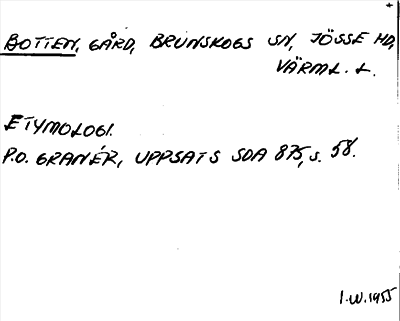 BOTTEN, GÅRD, BRUNSKOGS SN, JÖSSE HD,
VÄRML. L.
ETYMOLOGI.
P.O. GRANÉR, UPPSATS SDA 875, s. 58.
I.W. 1955